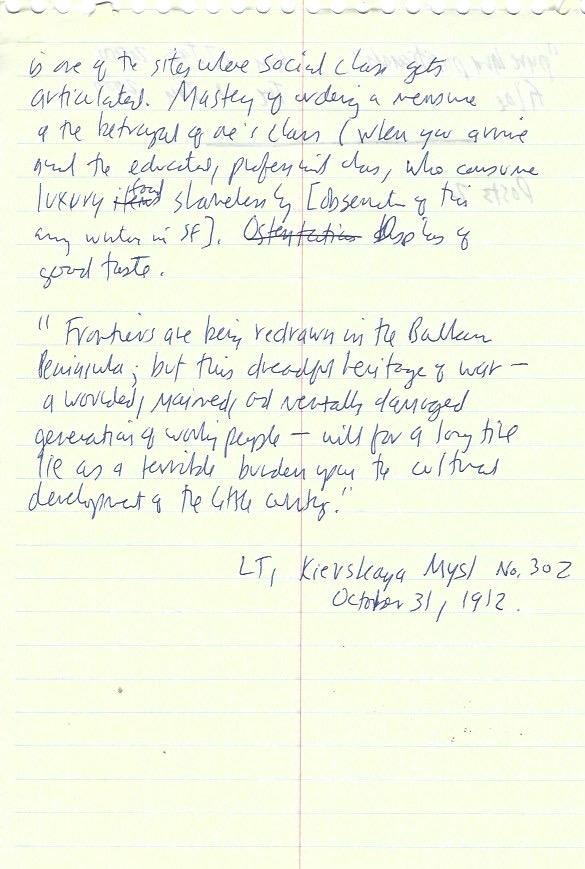 is one of the sites where social class gets
articulated. Mastery of ordering a menu
a the betrayal of one's class (when you arrive
amid the educated, professional class, who consume
luxury items food shamelessly [observation of this
any writer in SF]. Ostentatious Display of
good taste.
"Frontiers are being redrawn in the Balkan
Peninsula; but this dreadful heritage of war —
a wounded, maimed, and mentally damaged
generation of working people — will for a long time
lie as a terrible burden upon the cultural
development of the little country."
LT, Kievskaya Mysl No. 302
October 31, 1912.